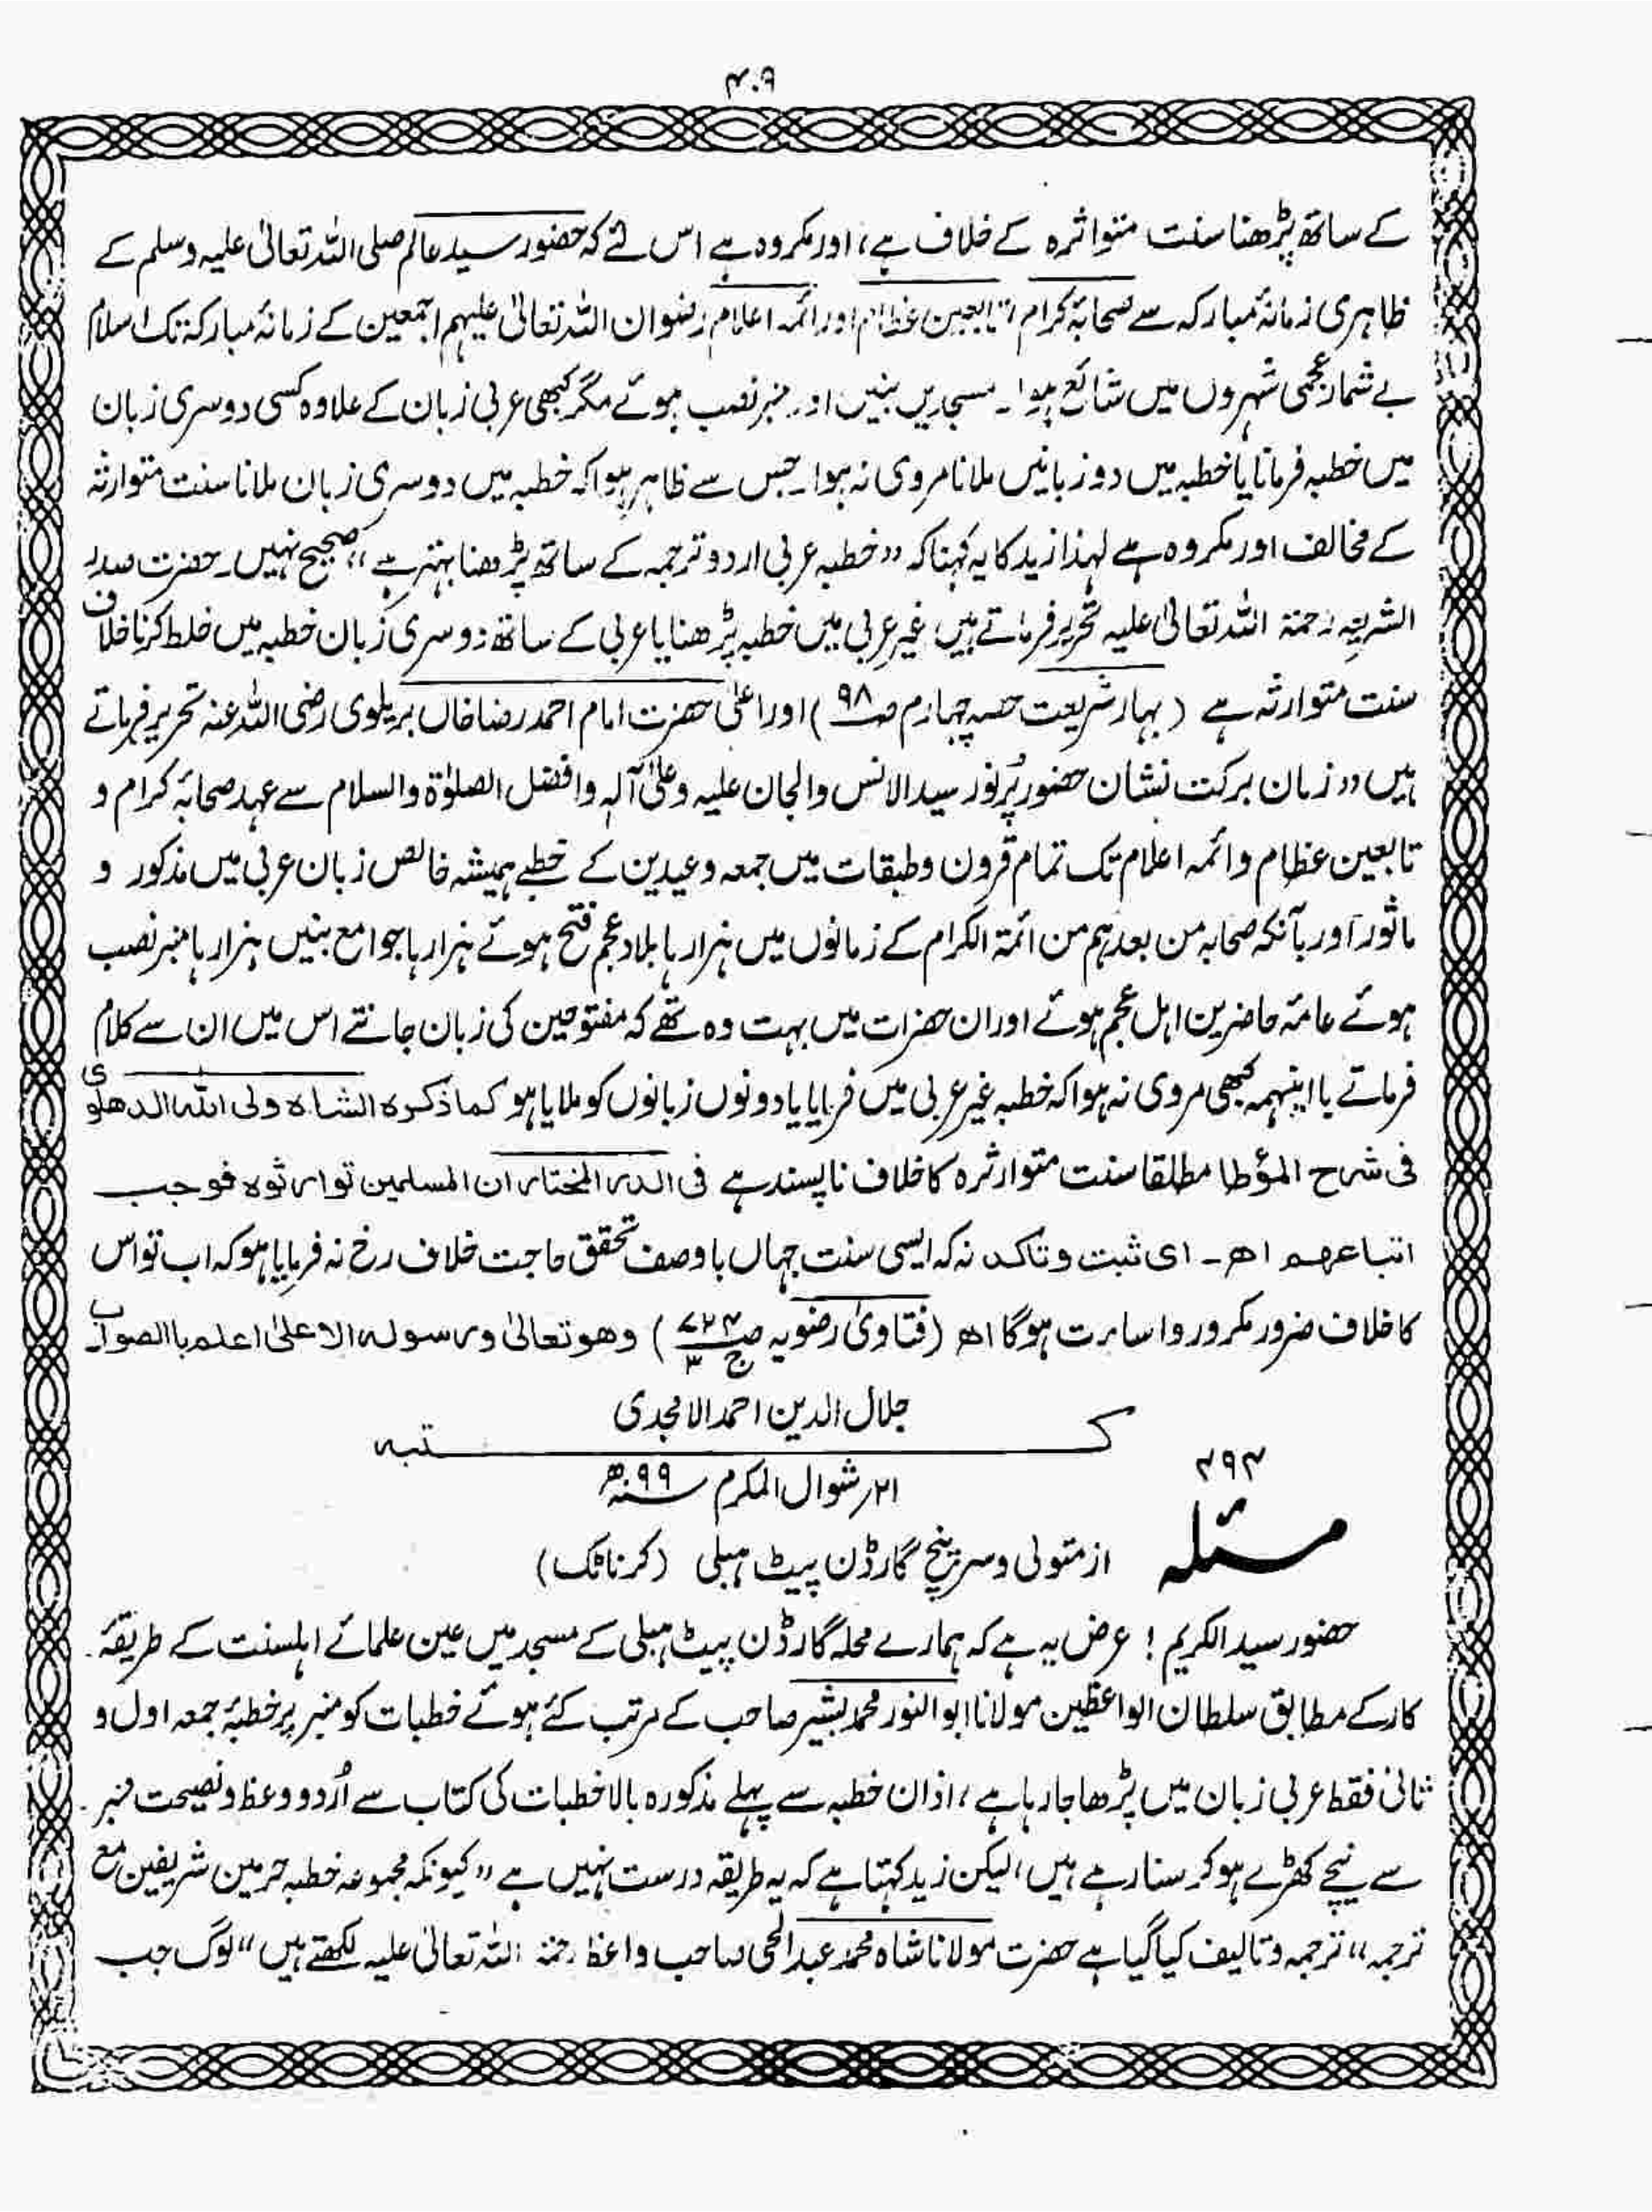 ۴۰۹
کے ساتھ پڑھنا سنت متواثرہ کے خلاف ہے، اور مکروہ ہے اس لئے کہ حضور سید عالم صلی اللہ تعالیٰ علیہ وسلم کے
ظاہری زمانۂ مبارکہ سے صحابۂ کرام، تابعین عظام اور ائمہ اعلام رضوان اللہ تعالیٰ علیہم اجمعین کے زمانۂ مبارکہ تک اسلام
بے شمار عجمی شہروں میں شائع ہوا۔ مسجدیں بنیں اور منبر نصب ہوئے مگر کبھی عربی زبان کے علاوہ کسی دوسری زبان
میں خطبہ فرمانا یا خطبہ میں دو زبانیں ملانا مروی نہ ہوا۔ جس سے ظاہر ہوا کہ خطبہ میں دوسری زبان ملانا سنت متوارثہ
کے مخالف اور مکروہ ہے لہذا زید کا یہ کہنا کہ ”خطبہ عربی اردو ترجمہ کے ساتھ پڑھنا بہتر ہے“ صحیح نہیں۔ حضرت صدر
الشریعہ رحمۃ اللہ تعالیٰ علیہ تحریر فرماتے ہیں غیر عربی میں خطبہ پڑھنا یا عربی کے ساتھ دوسری زبان خطبہ میں خلط کرنا خلاف
سنت متوارثہ ہے (بہار شریعت حصہ چہارم صـ ۹۸) اور اعلیٰ حضرت امام احمد رضا خاں بریلوی رضی اللہ عنہ تحریر فرماتے
ہیں ”زمان برکت نشان حضور پُر نور سید الانس والجان علیہ وعلیٰ آلہٖ وافضل الصلوٰۃ والسلام سے عہد صحابۂ کرام و
تابعین عظام وائمہ اعلام تک تمام قرون وطبقات میں جمعہ وعیدین کے خطبے ہمیشہ خالص زبان عربی میں مذکور و
ماثور اور بآنکہ صحابہ من بعدہم من ائمۃ الکرام کے زمانوں میں ہزارہا بلاد عجم فتح ہوئے ہزارہا جوامع بنیں ہزارہا منبر نصب
ہوئے عامۂ حاضرین اہل عجم ہوئے اور ان حضرات میں بہت وہ تھے کہ مفتوحین کی زبان جانتے اس میں ان سے کلام
فرماتے با اینہمہ کبھی مروی نہ ہوا کہ خطبہ غیر عربی میں فرمایا یا دونوں زبانوں کو ملایا ہو کما ذکرہ الشاہ ولی اللہ الدھلوی
فی شرح المؤطا مطلقا سنت متوارثرہ کا خلاف ناپسند ہے فی الدر المختار ان المسلمین توارثوہ فوجب
اتباعھم اھ۔ ای ثبت وتاکد نہ کہ ایسی سنت جہاں باوصف تحقق حاجت خلاف رخ نہ فرمایا ہو کہ اب تو اس
کا خلاف ضرور مکرور واساءت ہوگا اھ (فتاویٰ رضویہ صـ ۷۲۴ ج ۳) وھو تعالیٰ ورسولہ الاعلیٰ اعلم باالصواب
جلال الدین احمد الامجدی
کتبہ
۲۱؍ شوال المکرم ۹۹ھ
۳۹۴
مسئلہ از متولی و سر پنچ گارڈن پیٹ ہبلی (کرناٹک)
حضور سید الکریم! عرض یہ ہے کہ ہمارے محلہ گارڈن پیٹ ہبلی کے مسجد میں عین علمائے اہلسنت کے طریقۂ
کار کے مطابق سلطان الواعظین مولانا ابوالنور محمد بشیر صاحب کے مرتب کئے ہوئے خطبات کو منبر پر خطبۂ جمعہ اول و
ثانی فقط عربی زبان میں پڑھا جارہا ہے، اذان خطبہ سے پہلے مذکورہ بالا خطبات کی کتاب سے اُردو وعظ ونصیحت منبر
سے نیچے کھڑے ہو کر سنا رہے ہیں، لیکن زید کہتا ہے کہ یہ طریقہ درست نہیں ہے ”کیونکہ مجموعہ خطبہ حرمین شریفین مع
ترجمہ“ ترجمہ وتالیف کیا گیا ہے حضرت مولانا شاہ محمد عبدالحی صاحب واعظ رحمۃ اللہ تعالیٰ علیہ لکھتے ہیں ”لوگ جب